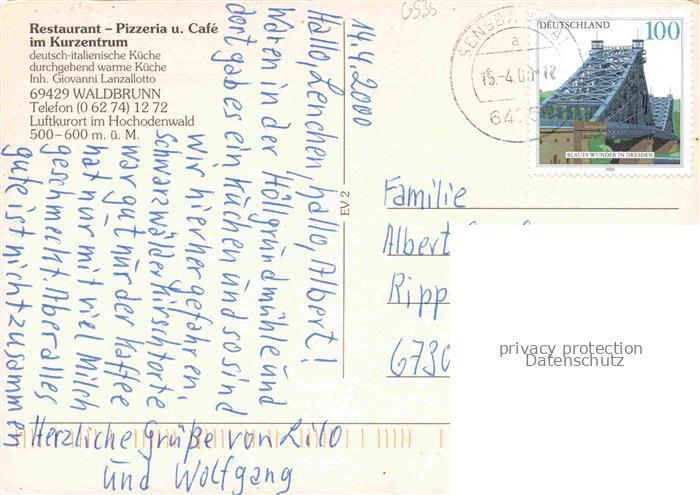 Restaurant – Pizzeria u. Café
im Kurzentrum
deutsch-italienische Küche
durchgehend warme Küche
Inh. Giovanni Lanzallotto
69429 WALDBRUNN
Telefon (0 62 74) 12 72
Luftkurort im Hochodenwald
500–600 m. ü. M.
14.4.2000
Hallo, Lenchen, hallo, Albert!
Waren in der Höllgrundmühle und
dort gab es ein Küchen und so sind
wir hierher gefahren.
Schwarzwälder Kirschtorte
war gut nur der Kaffee
hat nur mit viel Milch
geschmeckt. Aber alles
gute ist nicht zusammen
Herzliche Grüße von Lilo
und Wolfgang
EV 2
6535
SENSBA
a
15.-4.00-12
64
DEUTSCHLAND
100
BLAUES WUNDER IN DRESDEN
2000
Familie
Albert
Ripp
6730
privacy protection
Datenschutz